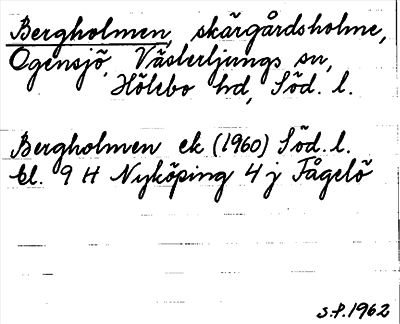 Bergholmen, skärgårdsholme,
Ogensjö, Västerljungs sn,
Hölebo hd, Söd. l.
Bergholmen ek (1960) Söd. l.
bl. 9 H Nyköping 4 j Fågelö
S.P. 1962